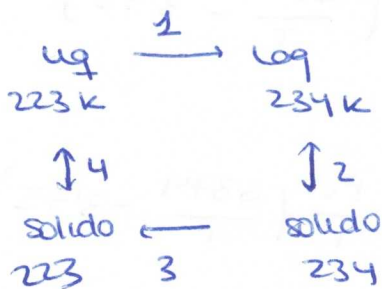 1
liq → liq
223 K 234 K
↕ 4 ↕ 2
solido ← solido
223 3 234